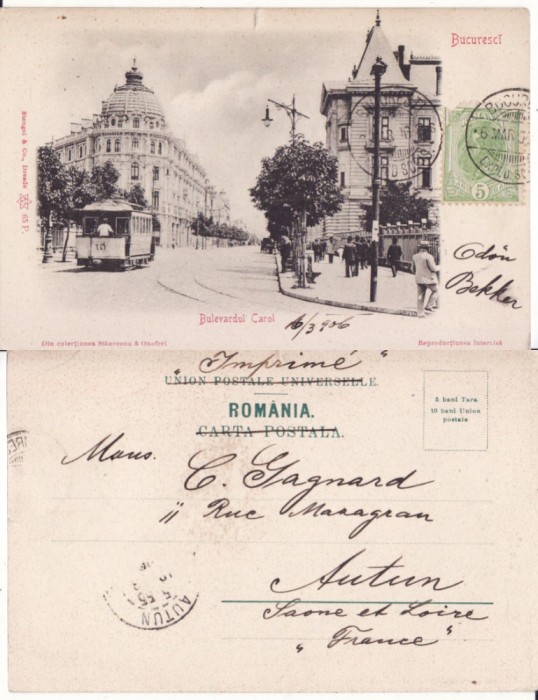 Bucuresci
Stengel & Co., Dresde 65 P.
10
5
BUCURE
6 MAR
Odön
Bekker
Bulevardul Carol
16/3 906
Din colerțiunea Stäncescu & Onofrei
Reproducțiunea Interzisă
"Imprimé"
UNION POSTALE UNIVERSELLE.
ROMÂNIA.
CARTA POSTALA.
5 bani Tara
10 bani Union
postale
Mons.
C. Gagnard
11 Rue Mazagran
Autun
Saone et Loire
"France"
AUTUN